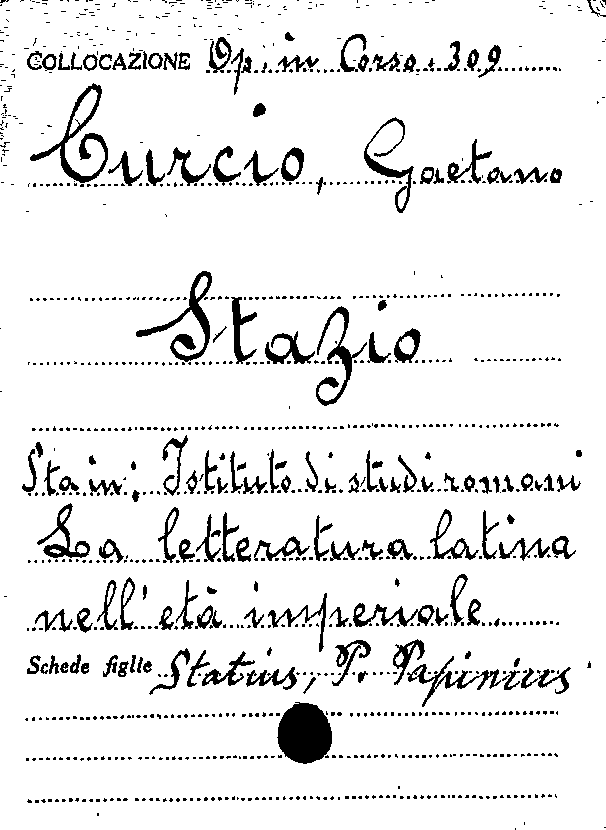 COLLOCAZIONE Op. in Corso. 309
Curcio, Gaetano
Stazio
Sta in: Istituto di studi romani
La letteratura latina
nell'età imperiale.
Schede figlie Statius, P. Papinius